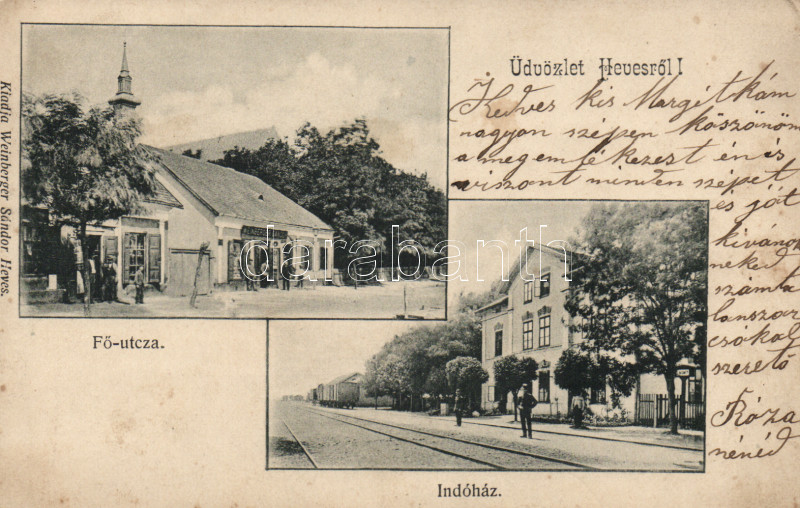 Üdvözlet Hevesről!
Kedves kis Margitkám
nagyon szépen köszönöm
a megemlékezést én is
viszont minden szépet
és jót
kívánok
neked
számta
lanszor
csókol
szerető
Róza
nénéd
Kiadja Weinberger Sándor Heves.
darabanth
Fő-utcza.
Indóház.